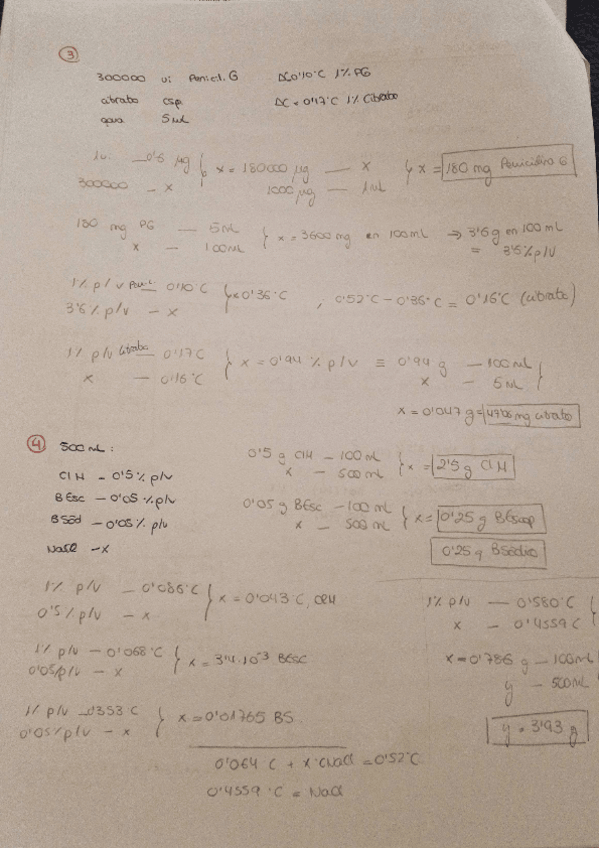 3
300000 ui Penicl. G ΔC 0'10°C 1% PG
citrato csp. ΔC = 0'17°C 1% Citrato
5 mL
1u. — 0'6 µg } x = 180000 µg — x } x = 180 mg Penicilina G
300000 — x 1000 µg — 1 mL
180 mg PG — 5 mL } x = 3600 mg en 100 mL ⇒ 3'6 g en 100 mL
x — 100 mL = 3'6% p/v
1% p/v Penic. — 0'10 C } x = 0'36°C , 0'52°C - 0'36°C = 0'16°C (citrato)
3'6% p/v — x
1% p/v citrato — 0'17 C } x = 0'94 % p/v ≡ 0'94 g — 100 mL }
x — 0'16°C x — 5 mL
x = 0'047 g = 47'06 mg citrato
4 500 mL :
ClH — 0'5% p/v
BEsc — 0'05% p/v
BSód — 0'05% p/v
NaCl — x
0'5 g ClH — 100 mL } x = 2'5 g ClH
x — 500 mL
0'05 g BEsc — 100 mL } x = 0'25 g BEscop
x — 500 mL
0'25 g BSódio
1% p/v — 0'086°C } x = 0'043°C, ClH
0'5% p/v — x
1% p/v — 0'068°C } x = 3'4·10⁻³ BEsc
0'05% p/v — x
1% p/v — 0'353 C } x = 0'01765 BS
0'05% p/v — x
0'064 C + x·CNaCl = 0'52°C
0'4559 °C = NaCl
1% p/v — 0'580°C }
x — 0'4559°C
x = 0'786 g — 100 mL
y — 500 mL
y = 3'93 g